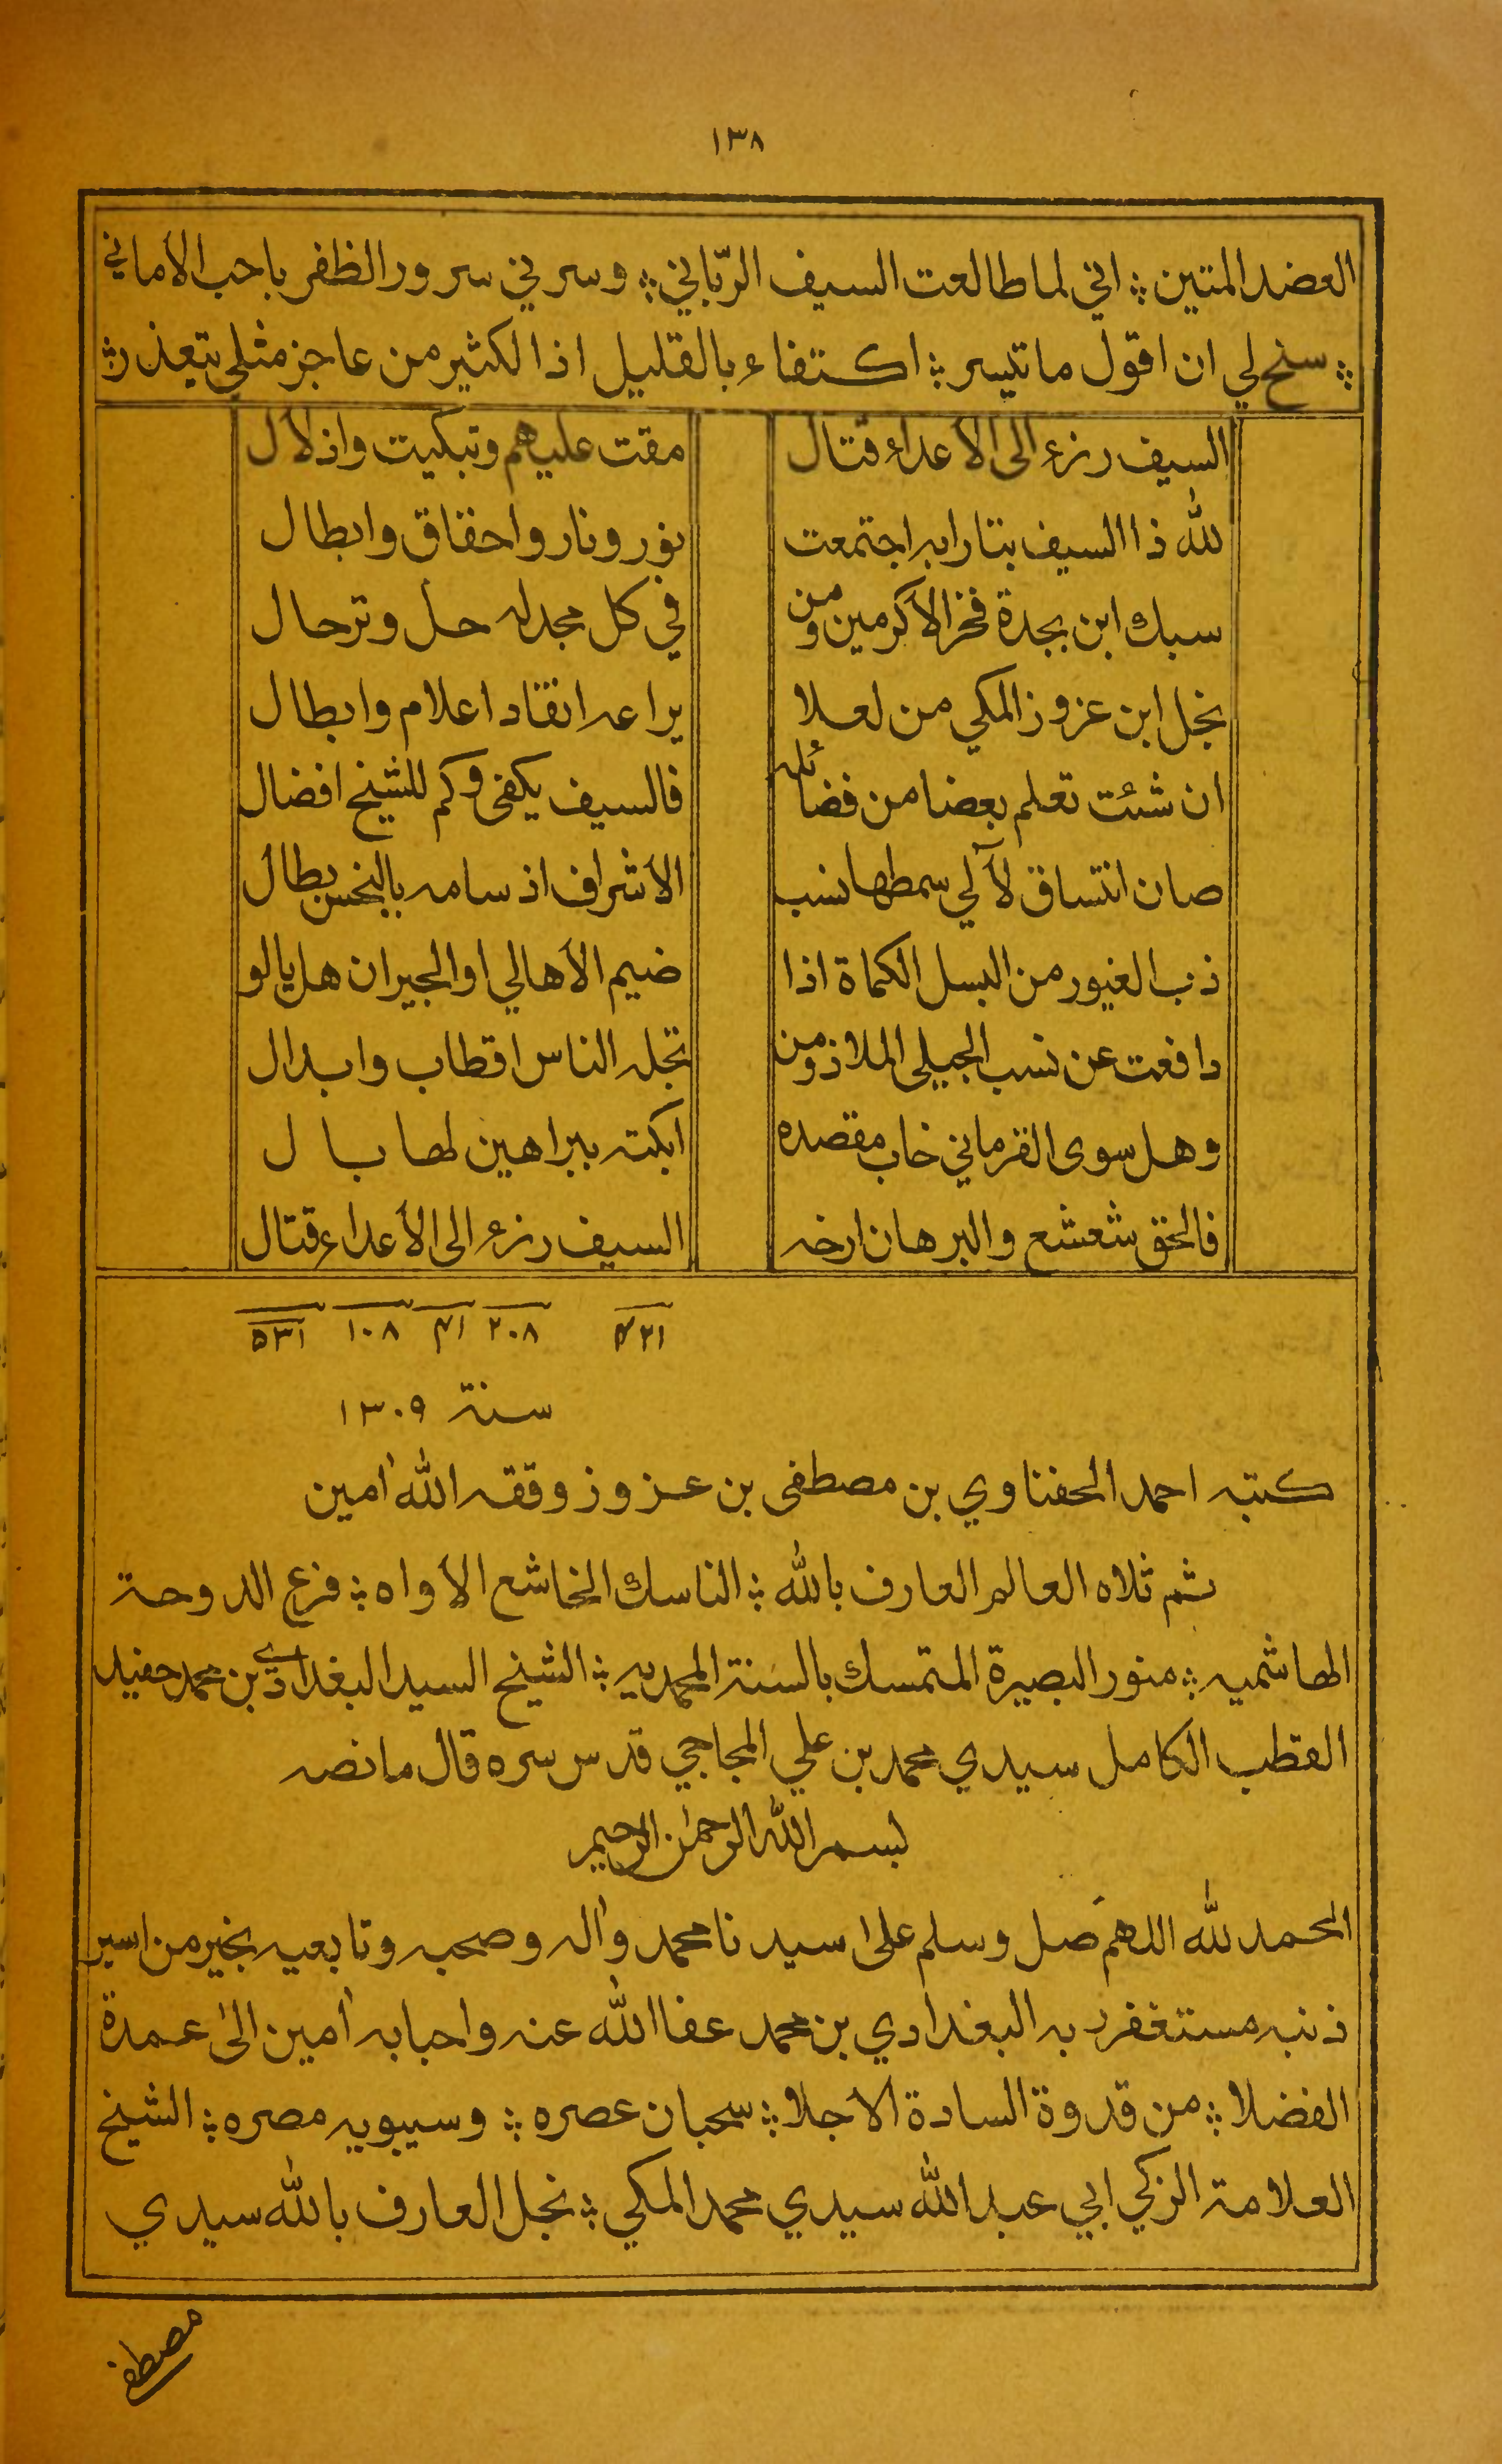 ١٣٨
العضد المتين ؛ اني لما طالعت السيف الربّاني ؛ وسرني سرور الظفر باحب الأماني
؛ سنح لي ان اقول ما تيسر ؛ اكتفاء بالقليل اذ الكثير من عاجز مثلي يتعذر ؛
السيف رزء الى الأعداء قتال مقت عليهم وتبكيت واذلال
لله ذا السيف بتارا به اجتمعت نور ونار واحقاق وابطال
سبك ابن بجدة فخر الأكرمين ومن في كل مجد له حل وترحال
نجل ابن عزوز المكي من لعلا يراعه انقاد اعلام وابطال
ان شئت تعلم بعضا من فضائله فالسيف يكفي وكم للشيخ افضال
صان انتساق لآلي سمطها نسب الأشراف اذ سامه بالبخس بطال
ذب الغيور من البسل الكماة اذا ضيم الأهالي او الجيران هل يالو
دافعت عن نسب الجيلي الملاذ ومن تجله الناس اقطاب وابدال
وهل سوى القرماني خاب مقصده ابكته ببراهين لها بال
فالحق شعشع والبرهان ارخه السيف رزء الى الأعداء قتال
٢٢١ ٢٠٨ ٤١ ١٠٨ ٥٣١
سنة ١٣٠٩
كتبه احمد الحفناوي بن مصطفى بن عزوز وفقه الله أمين
ثم تلاه العالم العارف بالله ؛ الناسك الخاشع الأواه ؛ فرع الدوحة
الهاشميه ؛ منور البصيرة المتمسك بالسنة المحمديه ؛ الشيخ السيد البغدادي بن محمد حفيد
القطب الكامل سيدي محمد بن علي المجاجي قدس سره قال ما نصه
بسم الله الرحمن الرحيم
الحمد لله اللهم صل وسلم على سيدنا محمد وآله وصحبه وتابعيه بخير من اسير
ذنبه مستغفر ربه البغدادي بن محمد عفا الله عنه واحبابه أمين الى عمدة
الفضلا ؛ من قدوة السادة الاجلا ؛ سحبان عصره ؛ وسيبويه مصره ؛ الشيخ
العلامة الزكي ابي عبد الله سيدي محمد المكي ؛ نجل العارف بالله سيدي
مصطفى